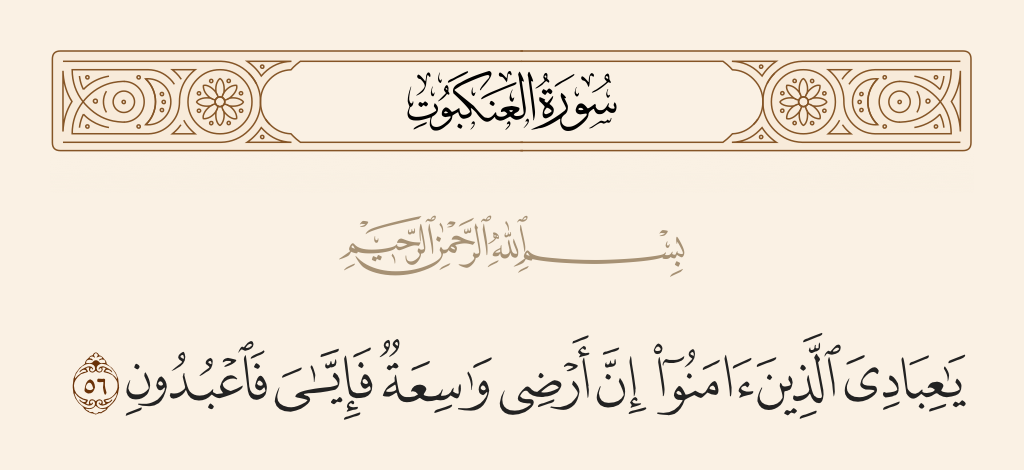 سُورَةُ العَنكَبُوتِ
بِسْمِ ٱللَّهِ ٱلرَّحْمَٰنِ ٱلرَّحِيمِ
يَٰعِبَادِىَ ٱلَّذِينَ ءَامَنُوٓا۟ إِنَّ أَرْضِى وَٰسِعَةٌ فَإِيَّٰىَ فَٱعْبُدُونِ ٥٦